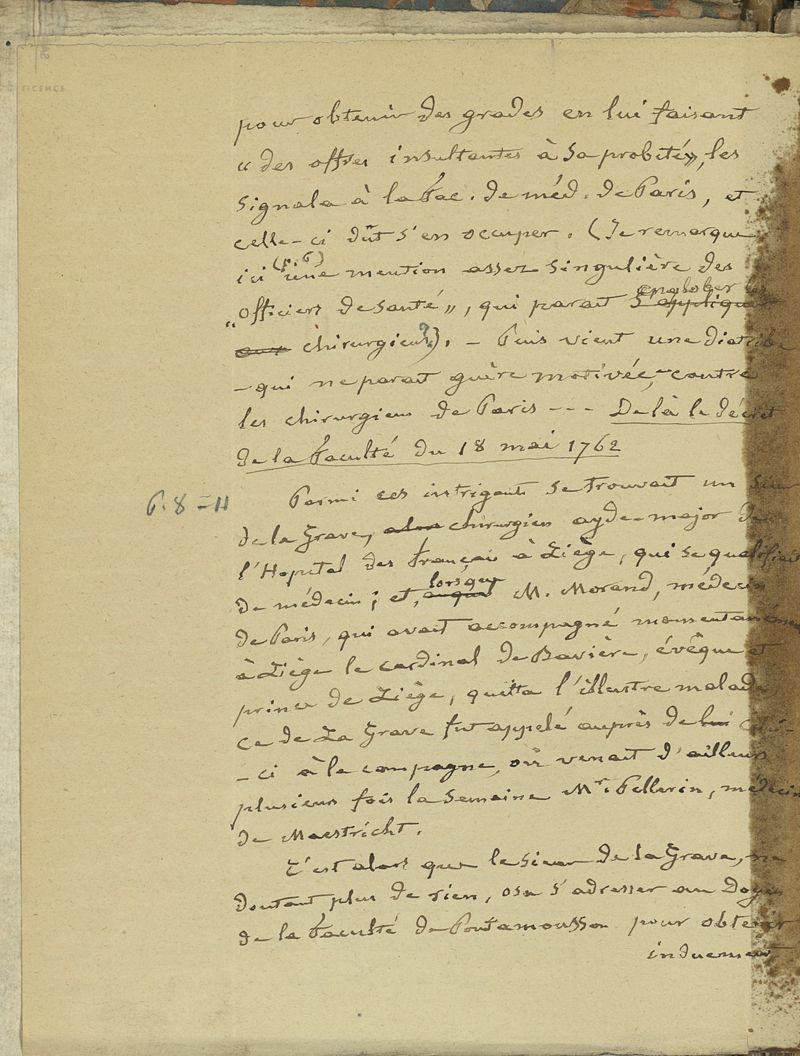 pour obtenir des grades en lui faisant
« des offres insultantes à sa probité », les
signala à la Fac. de méd. de Paris, et
celle-ci dût s'en occuper. (Je remarque
ici (p. 6) une mention assez singulière des
„officiers de santé", qui parait s'appliquer englober les
aux chirurgiens?). - Puis vient une diatribe
- qui ne parait guère motivée - contre
les chirurgiens de Paris --- De là le décret
de la Faculté du 18 mai 1762
P. 8 - 11
Parmi ces intrigants se trouvait un sieur
de la Grave, alors chirurgien ayde-major de
l'Hopital des Français à Liège, qui se qualifiait
de médecin ; et, auquel lorsque M. Morand, médecin
de Paris, qui avait accompagné momentanément
à Liège le cardinal de Bavière, évêque et
prince de Liège, quitta l'illustre malade
ce de La Grave fut appelé auprès de lui celui-
-ci à la campagne, où venait d'ailleurs
plusieurs fois la semaine Mr. Pellerin, médecin
de Maestricht.
C'est alors que le sieur de la Grave, ne
doutant plus de rien, osa s'adresser au Doyen
de la Faculté de Pontamousson pour obtenir
induement